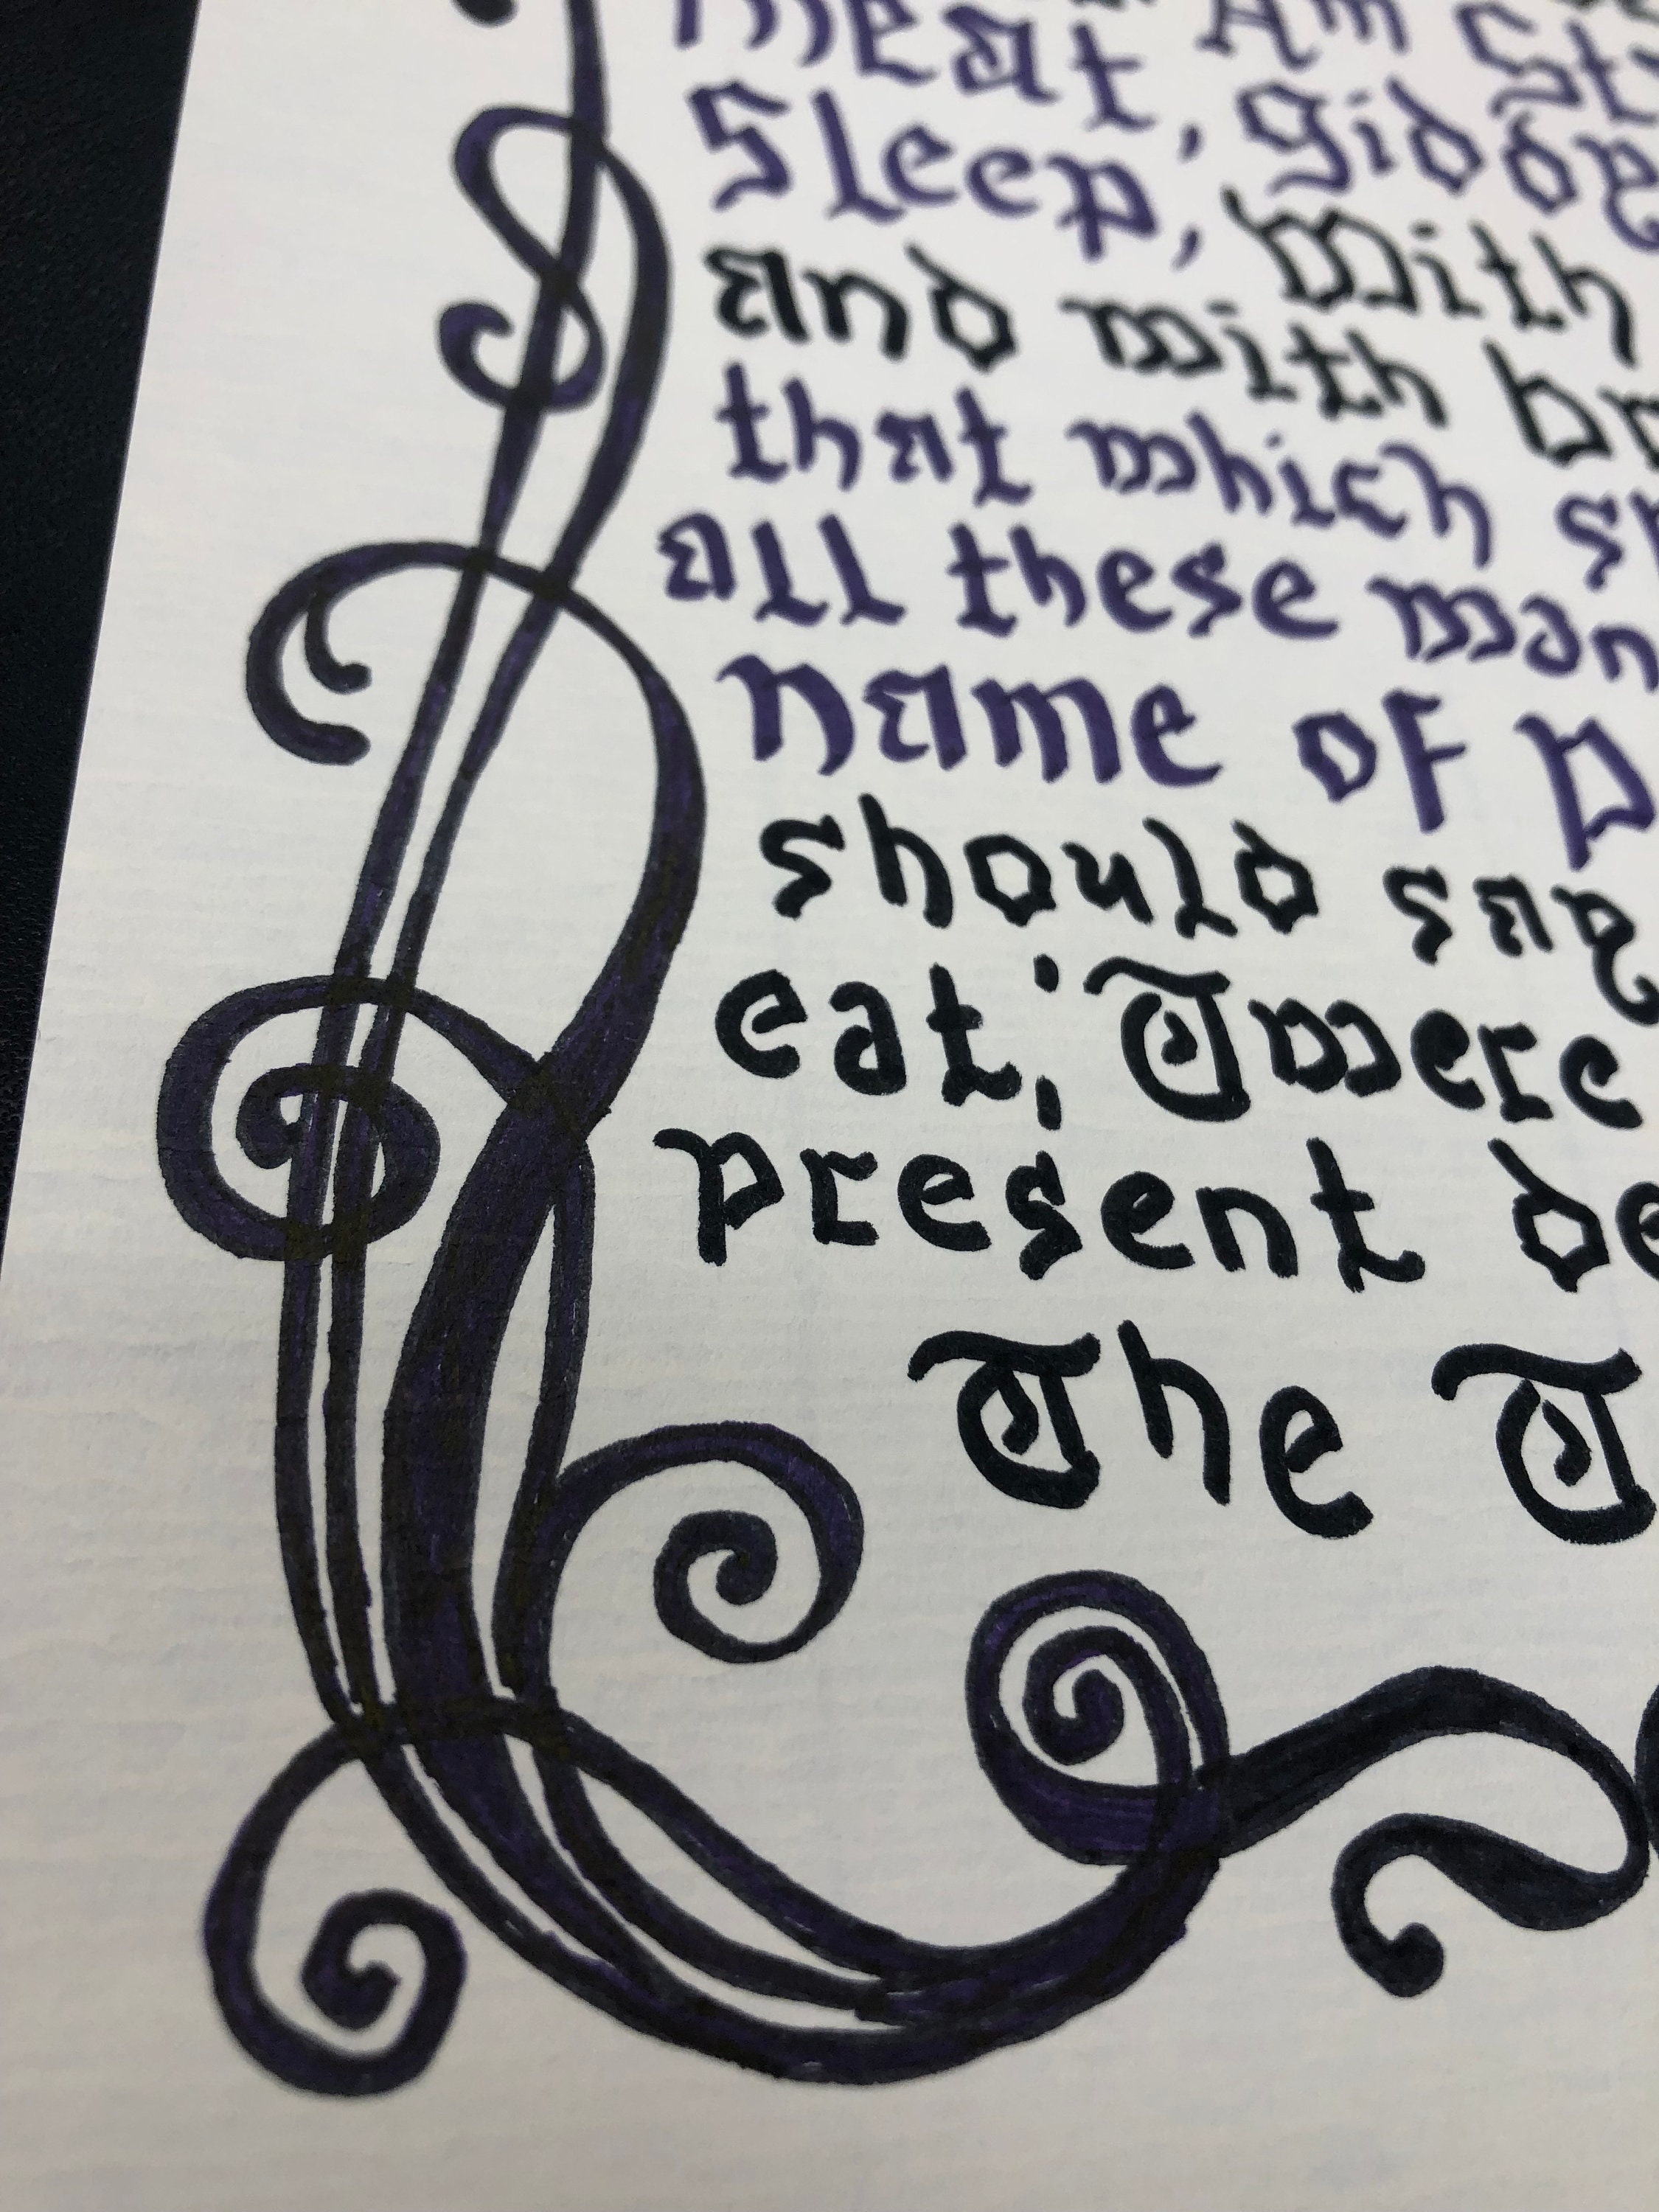 meat, Am
Sleep, giddy
With
and with
that which
all these
name of
should say
eat; 'Twere
present
The